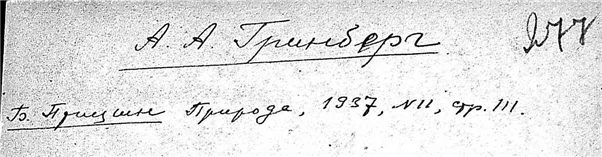 А. А. Гринберг 277
Б. Природа, 1937, N11, стр. 111.